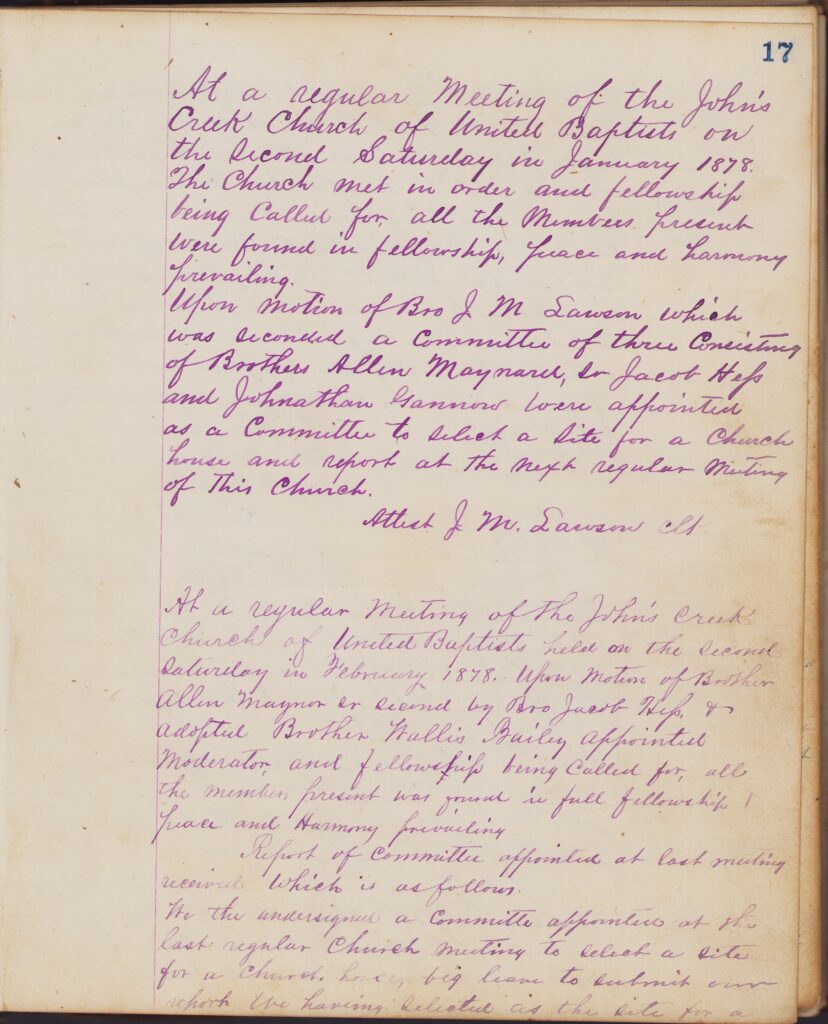 17
At a regular Meeting of the John's
Creek Church of United Baptists on
the Second Saturday in January 1878.
The Church met in order and fellowship
being Called for, all the Members present
were found in fellowship, peace and harmony
prevailing.
Upon motion of Bro J M Lawson which
was seconded a Committee of three Consisting
of Brothers Allen Maynard, Sr Jacob Hess
and Johnathan Gannow were appointed
as a Committee to select a site for a Church
house and report at the next regular Meeting
of this Church.
Attest J. M. Lawson Clk
At a regular Meeting of the John's Creek
Church of United Baptists held on the second
Saturday in February 1878. Upon Motion of Brother
Allen Maynor Sr second by Bro Jacob Hess, &
adopted Brother Wallis Bailey appointed
Moderator, and fellowship being Called for, all
the members present was found in full fellowship
peace and Harmony prevailing
Report of Committee appointed at last meeting
received which is as follows.
We the undersigned a Committe appointed at the
last regular Church meeting to select a site
for a Church house, beg leave to submit our
report we having selected as the site for a